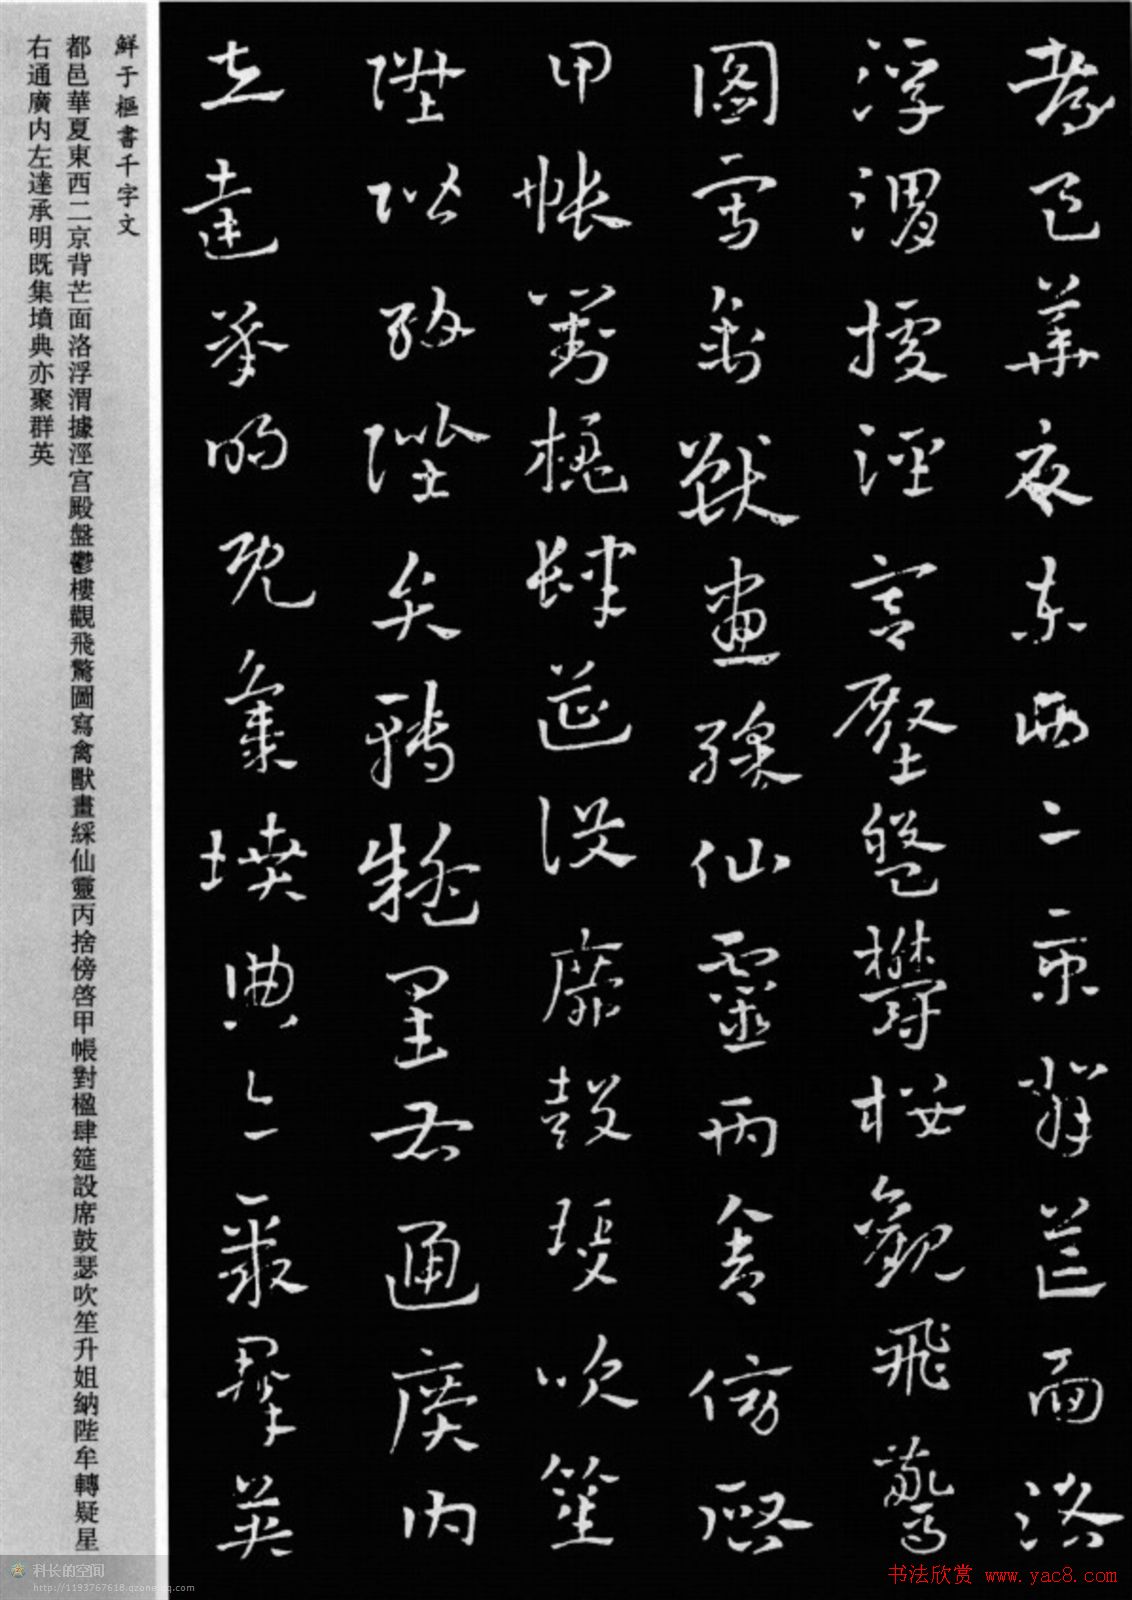 都邑華夏東西二京背芒面洛
浮渭據涇宮殿盤鬱樓觀飛驚
圖寫禽獸畫綵仙靈丙舍傍啓
甲帳對楹肆筵設席鼓瑟吹笙
陞階納陛弁轉疑星右通廣内
左達承明既集墳典亦聚群英
鮮于樞書千字文
都邑華夏東西二京背芒面洛浮渭據涇宫殿盤鬱樓觀飛驚圖寫禽獸畫綵仙靈丙捨傍啓甲帳對楹肆筵設席鼓瑟吹笙升姐納陛牟轉疑星
右通廣内左達承明既集墳典亦聚群英
科长的空间
http://1193767618.qzone.qq.com
书法欣赏 www.yac8.com